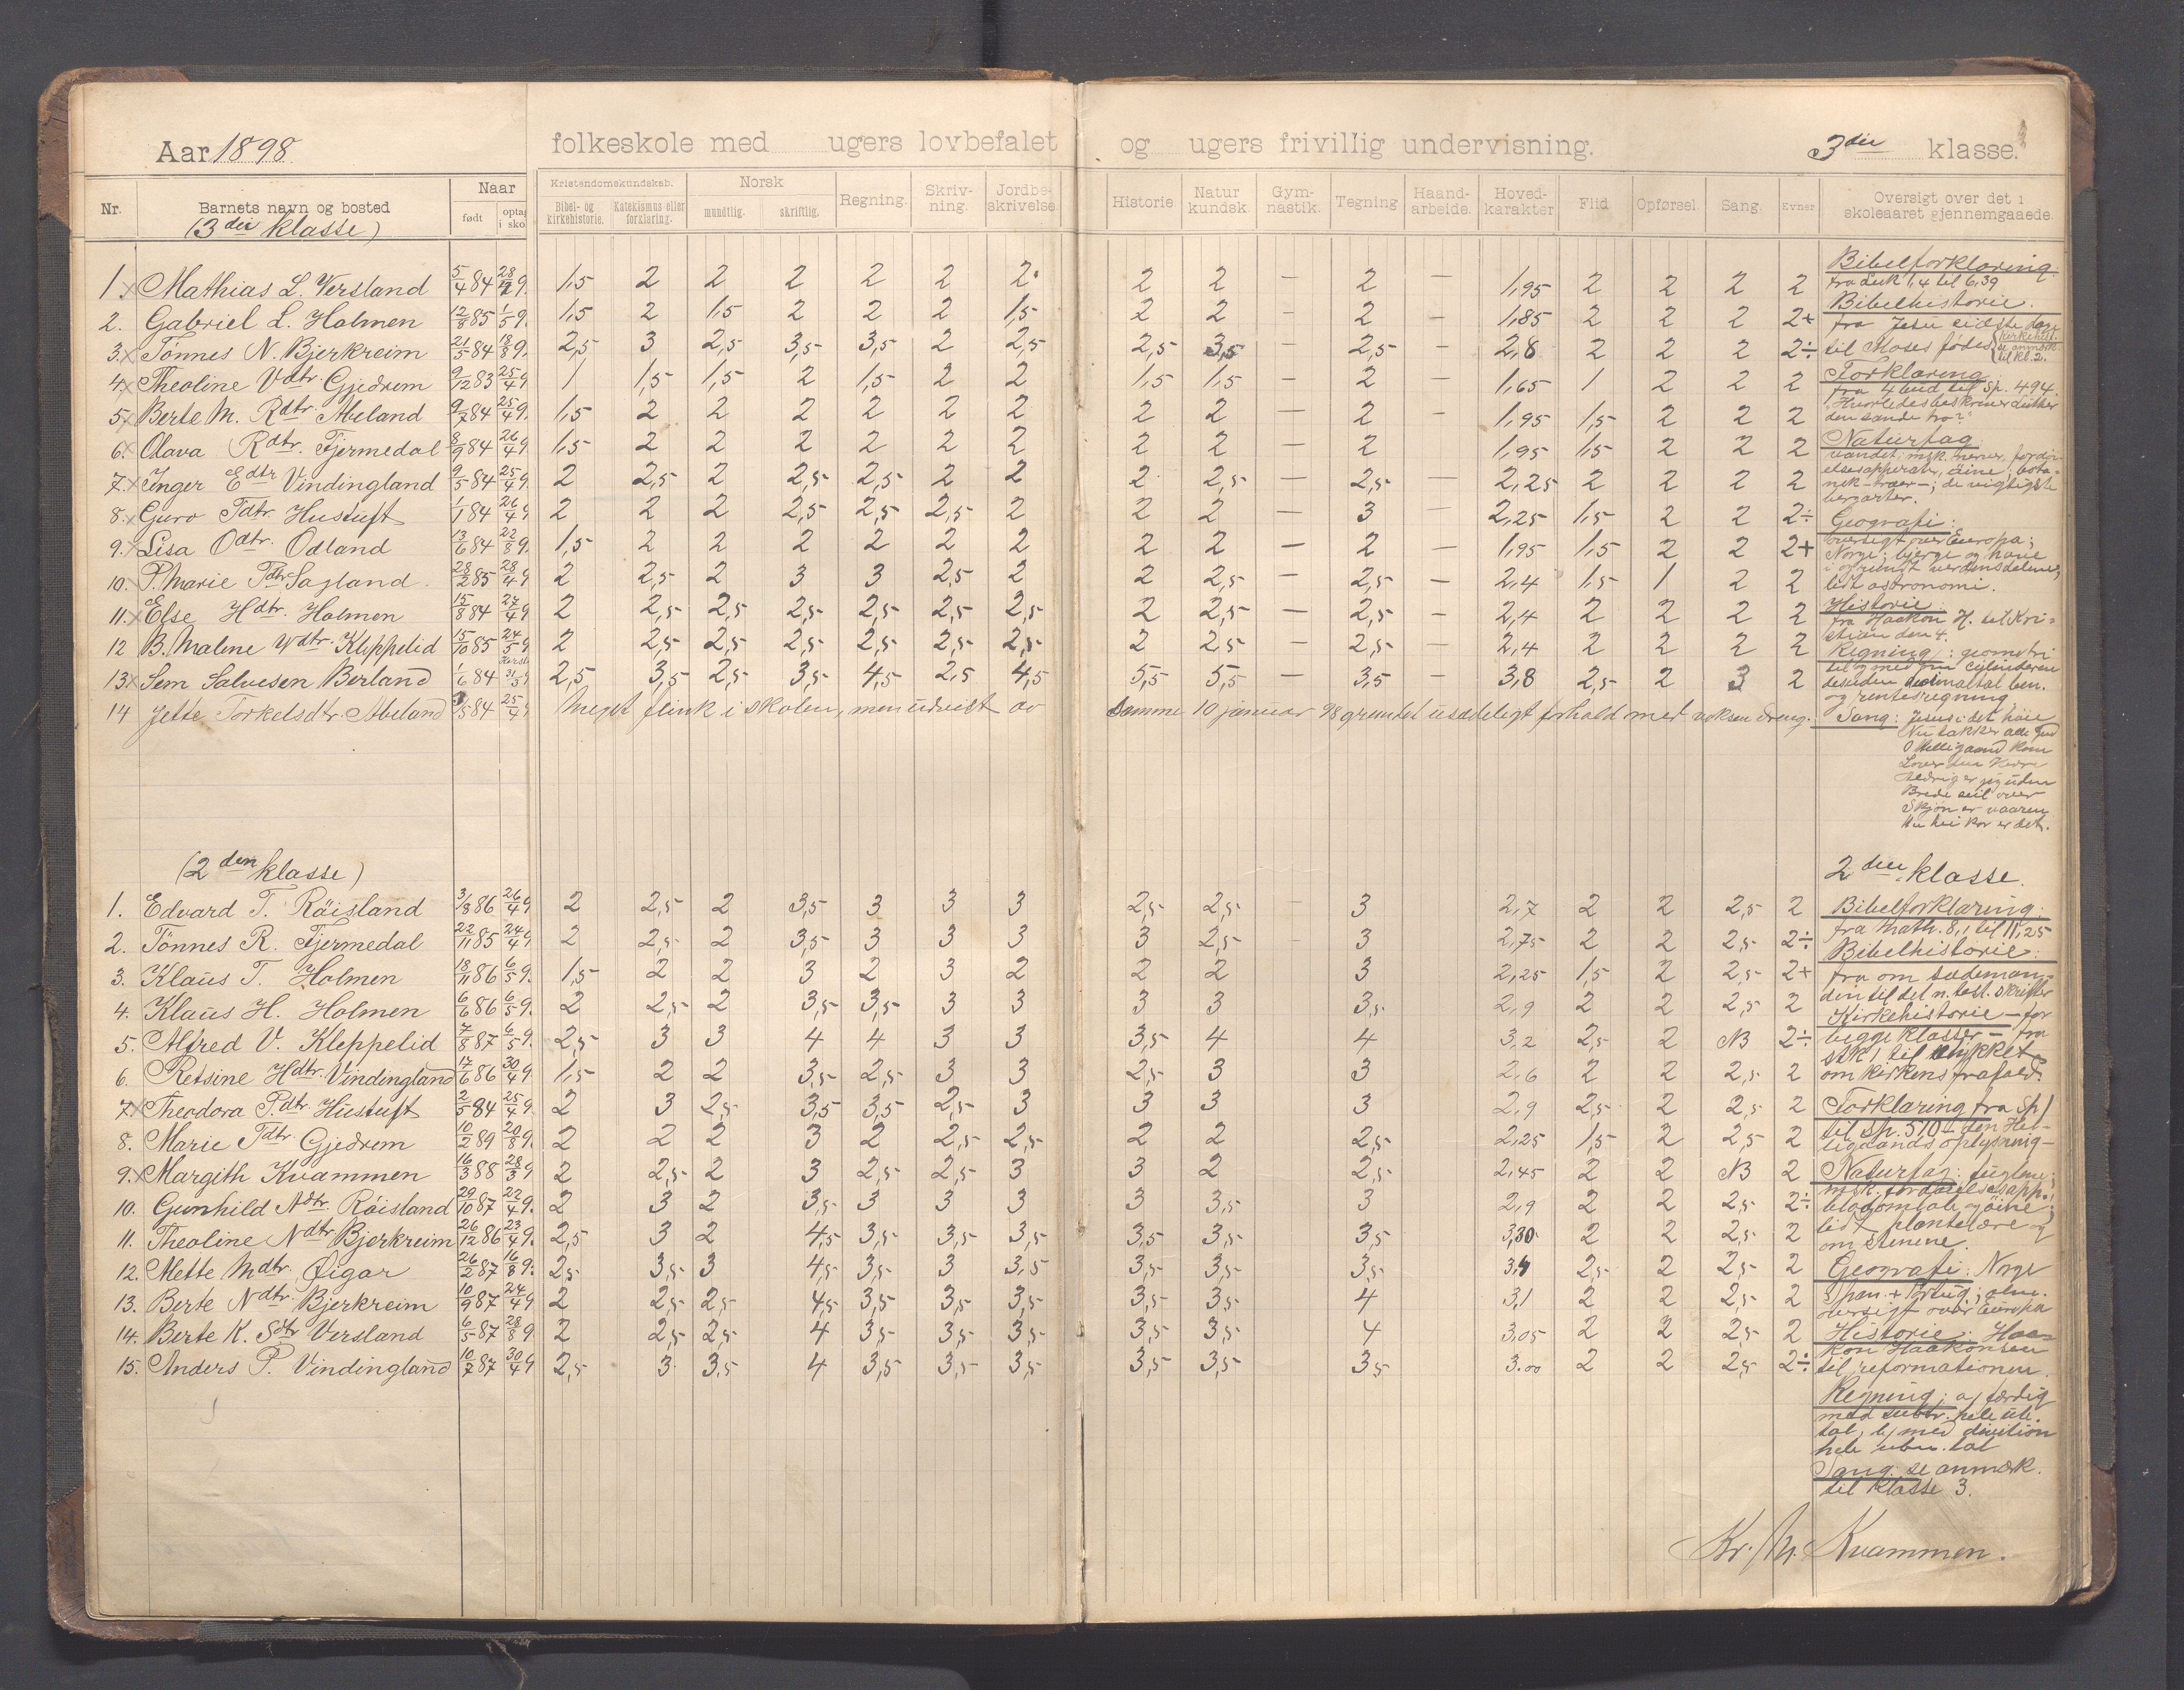 Aar 1898 folkeskole med ugers lovbefalet og ugers frivillig undervisning. 3die klasse.
Nr. Barnets navn og bosted Naar født optag i sko Kristendomskundskab. Bibel- og kirkehistorie. Katekismus eller forklaring. Norsk mundtlig. skriftlig. Regning. Skriv-ning. Jordbe-skrivelse. Historie Natur kundsk. Gym-nastik. Tegning Haand-arbeide. Hoved-karakter Flid Opførsel. Sang. Evner Oversigt over det i skoleaaret gjennemgaaede.
(3die klasse)
1. Mathias L. Versland 5/4 84 1,5 2 2 2 2 2 2 2 2 – 2 – 1,95 2 2 2 2
2. Gabriel L. Holmen 12/8 85 1/5 9. 1,5 2 1,5 2 2 2 1,5 2 2 – 2 – 1,85 2 2 2 2+
3. Tønnes N. Bjerkreim 21/5 84 18/8 9. 2,5 3 2,5 3,5 3,5 2 2,5 2,5 3,5 – 2,5 – 2,8 2 2 2 2÷
4. Theoline Vdtr. Gjedrem 9/12 83 25/4 9 1 1,5 1,5 2 1,5 2 2 1,5 1,5 – 2 – 1,65 1 2 2 2
5. Berte M. Rdtr. Abeland 9/7 84 25/4 9. 1,5 2 2 2 2 2 2 2 2 – 2 – 1,95 1,5 2 2 2
6. Olava Rdtr. Fjermedal 8/9 84 26/4 9 1,5 2 2 2 2 2 2 2 2 – 2 – 1,95 1,5 2 2 2
7. Inger Edtr Vindingland 9/5 84 25/4 9. 2 2,5 2 2,5 2,5 2 2 2 2,5 – 2,5 – 2,25 2 2 2 2
8. Guro Tdtr. Hustuft 1/1 84 26/4 9 2 2 2 2,5 2,5 2,5 2 2 2 – 3 – 2,25 1,5 2 2 2÷
9. Lisa Odtr. Odland 13/6 84 22/8 9. 1,5 2 2 2 2 2 2 2 2 – 2 – 1,95 1,5 2 2 2+
10. P. Marie Tdtr Sagland. 28/2 85 28/4 9 2 2,5 2 3 3 2,5 2 2 2,5 – 2,5 – 2,4 1,5 1 2 2
11. Else Hdtr. Holmen 15/8 84 27/4 9 2 2,5 2,5 2,5 2,5 2,5 2,5 2 2,5 – 2,5 – 2,4 2 2 2 2
12 B. Malene Wdtr. Kleppelid 15/10 85 24/5 9 2 2,5 2,5 2,5 2,5 2,5 2,5 2 2,5 – 2,5 – 2,4 2 2 2 2
13. Sem Salvesen Berland 1/6 84 31/5 9 2,5 3,5 2,5 3,5 4,5 2,5 4,5 5,5 5,5 – 3,5 – 3,8 2,5 2 3 2
14 Jette Torkelsdtr. Abeland 84 25/4 9 Meget flink i skolen, men udvist av samme 10 januar 98 grundet usædeligt forhold med voksen dreng.
Bibelforklaring.
fra Luk 1,4 til 6,39
Bibelhistorie.
fra Jesu sidste dag
til Moses fødes (kirkehist. se anmærk. til kl. 2.
Forklaring
fra 4 bud til sp. 494
"Hvorledes beskriver Luther
den sande tro?"
Naturfag
vandet; msk. nerver, fordøi-
elsesapparater, øine; bota-
nik – træer –; de vigtigste
bergarter.
Geografi:
oversigt over Europa;
Norge; bjerge og have
i og rundt verdensdelene;
lidt astronomi.
Historie:
fra Haakon H. til Kri-
stian den 4.
Regning: geometri
til og med cylinderen
desuden decimaltal ben.
og rentesregning
Sang: Jesus i det høie
Nu takker alle Gud
O Helligaand kom
Lover den Herre
Aldrig er jeg uden
Brede seil over
Skjøn er vaaren
Nu hei kor er det.
(2den klasse) 2den klasse.
1. Edvard T. Röisland 3/8 86 26/4 9 2 2,5 2 3,5 3 3 3 2,5 2,5 – 3 2,7 2 2 2,5 2
2. Tönnes R. Fjermedal 22/11 85 24/4 9 2 2,5 2 3,5 3 3 3 3 2,5 – 3 2,75 2 2 2,5 2÷
3. Klaus T. Holmen 18/11 86 6/5 9. 1,5 2 2 3 2 3 2 2 2 3 2,25 1,5 2 2,5 2+
4. Klaus H. Holmen 6/6 86 6/5 9. 2 2,5 2 3,5 3,5 3 3 3 3 3,5 2,9 2 2 2,5 2
5. Alfred V. Kleppelid 7/8 87 6/5 9. 2,5 3 3 4 4 3 3 3,5 4 4 3,2 2,5 2 NB 2÷
6. Retsine Hdtr. Vindingland 17/6 86 30/4 9. 1,5 2 2 3,5 2,5 3 3 2,5 3 3 2,6 2 2 2,5 2
7. Theodora Pdtr. Hustuft 2/5 84 25/4 9. 2 3 2,5 3,5 3,5 2,5 3 3 3 3 2,9 2,5 2 2,5 2
8. Marie Tdtr. Gjedrem 10/2 89 20/8 9. 2 2 2 3 2 2,5 2,5 2 2 2,5 2,25 1,5 2 2,5 2
9. Margith Kvammen 16/3 88 28/3 9 2 2,5 2 3 2,5 2,5 3 3 2 2,5 2,45 2 2 NB 2
10. Gunhild Ndtr. Röisland 29/10 87 22/4 9. 2 3 2 3,5 3 3 3 3 3,5 3 2,9 2 2 2,5 2÷
11. Theoline Ndtr Bjerkreim 26/12 86 23/4 9. 2,5 3 2 4,5 3,5 3,5 3,5 3,5 3,5 3,5 3,30 2 2 2,5 2
12. Mette Mdtr. Øigar 26/2 87 16/8 9. 2,5 3,5 3 4,5 3,5 3 3,5 3,5 3,5 3,5 3,4 2,5 2 2,5 2
13. Berte Ndtr. Bjerkreim 10/9 87 24/4 9 2 2,5 2,5 4,5 3,5 3,5 3,5 3,5 3,5 4 3,1 2 2 2,5 2
14. Berte K. Sdtr Versland 6/5 87 28/8 9. 2 2,5 2,5 4 3,5 3,5 3,5 3,5 3,5 4 3,05 2 2 2,5 2
15. Anders P. Vindingland 10/7 87 30/4 9 2,5 3 3,5 4 3,5 3,5 3,5 3,5 3,5 3,5 3.00 2 2 2,5 2÷
Bibelforklaring:
fra Math. 8,1 til 11,25
Bibelhistorie:
fra om sædeman-
den til det n. test. skrifter
Kirkehistorie – for
begge klasser – fra
stk 1 til stykket
om kirkens frafald.
Forklaring fra Sp 1
til sp. 510 – den Hel-
ligaands oplysning –
Naturfag: fuglene;
msk. fordøielsesapp.;
blodomløb og øine;
lidt plantelære og
om stenene.
Geografi: Norge
Span. + Portug.; alm.
oversigt over Europa
Historie: Haa-
kon Haakonsen
til reformationen.
Regning: a) færdig
med subtr. hele ube.
tal, b) med division
hele ubn. tal
Sang: se anmærk.
til klasse 3.
Kr. M. Kvammen.